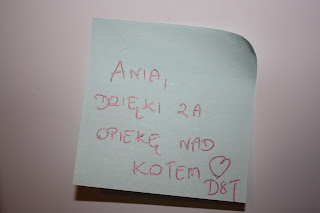 ANIA,
DZIĘKI ZA
OPIEKĘ NAD
KOTEM ♡
DBT